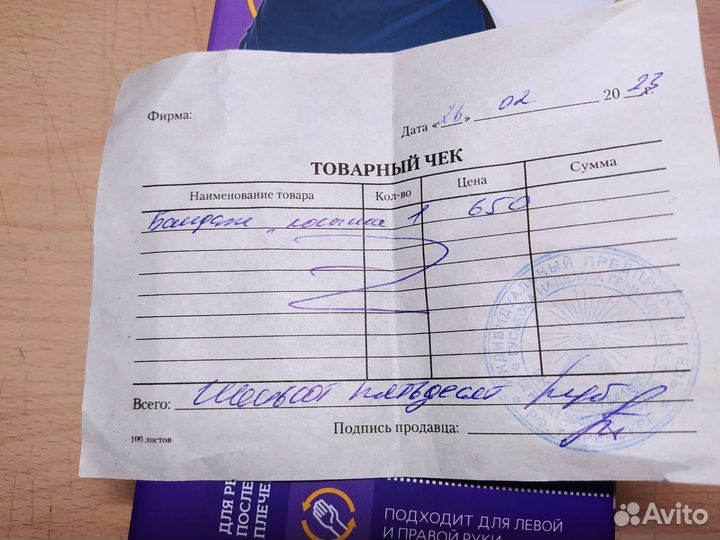 Фирма:
Дата «26» 02 2023 г.
ТОВАРНЫЙ ЧЕК
Наименование товара Кол-во Цена Сумма
Бандаж "косынка 1 650
Всего: Шестьсот пятьдесят руб
Подпись продавца:
100 листов
ИНДИВИДУАЛЬНЫЙ ПРЕДПРИНИМАТЕЛЬ
ДЛЯ
ПОСЛЕ
ПЛЕЧЕ
ПОДХОДИТ ДЛЯ ЛЕВОЙ
И ПРАВОЙ РУКИ
Avito